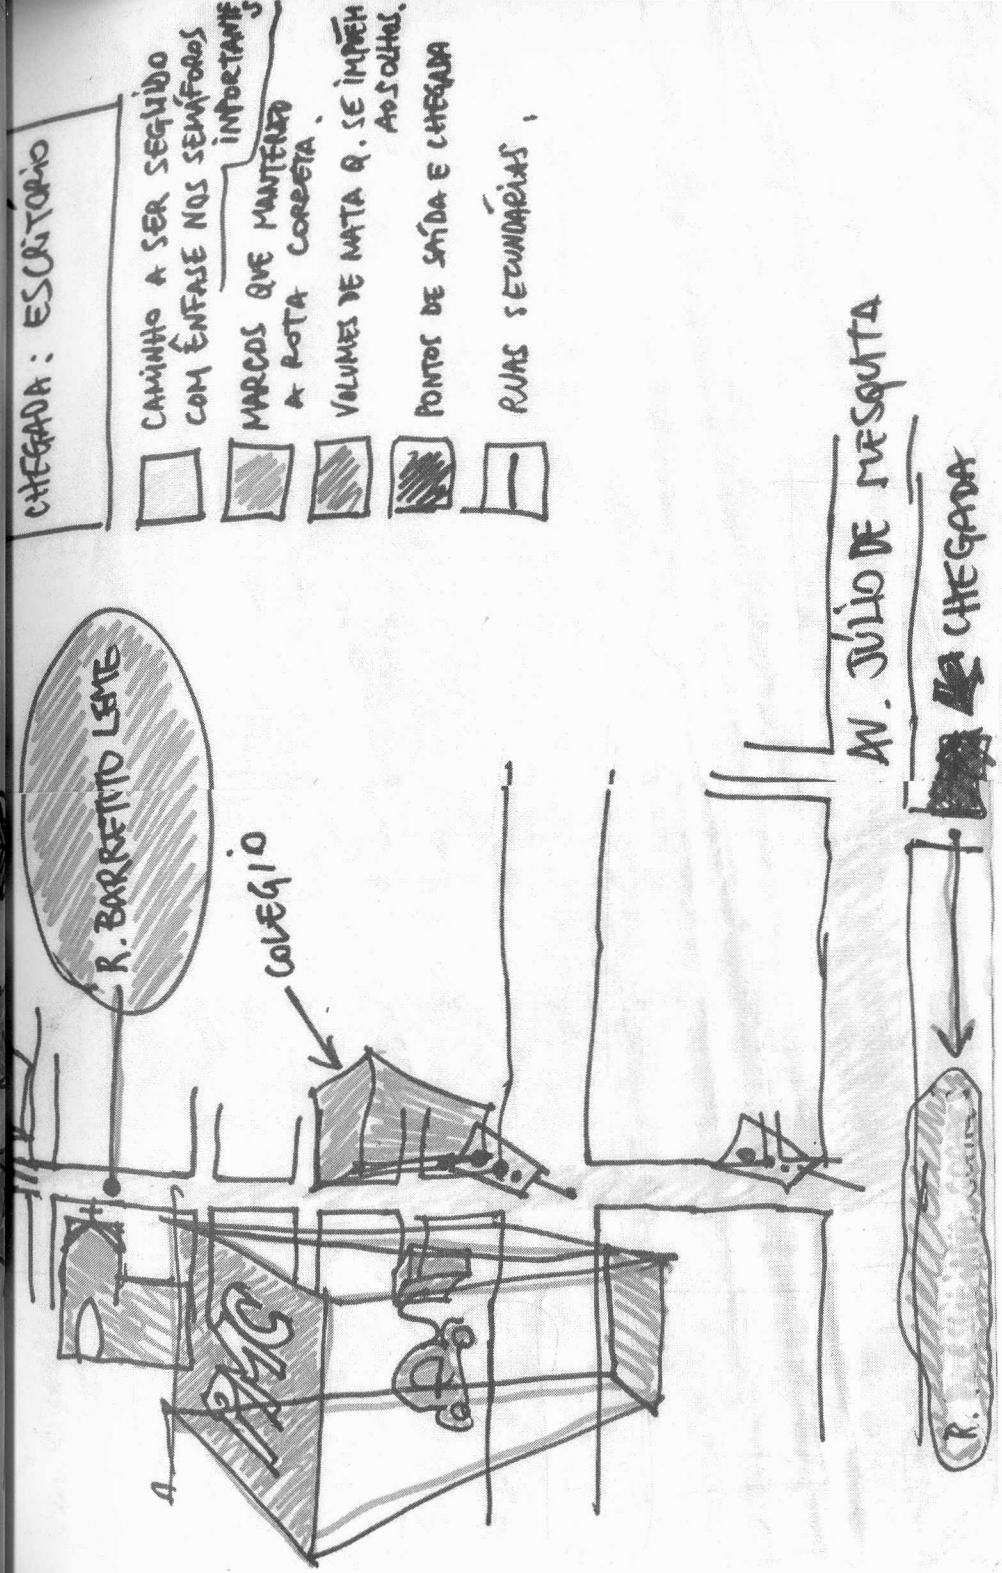 CHEGADA: ESCRITÓRIO
CAMINHO A SER SEGUIDO
COM ÊNFASE NOS SEMÁFOROS
IMPORTANTES
MARCOS QUE MANTERÃO
A ROTA CORRETA.
VOLUMES DE MATA Q. SE IMPÕEM
AOS OLHOS.
PONTOS DE SAÍDA E CHEGADA
RUAS SECUNDÁRIAS.
R. BARRETO LEME
COLÉGIO
AV. JÚLIO DE MESQUITA
CHEGADA
R.